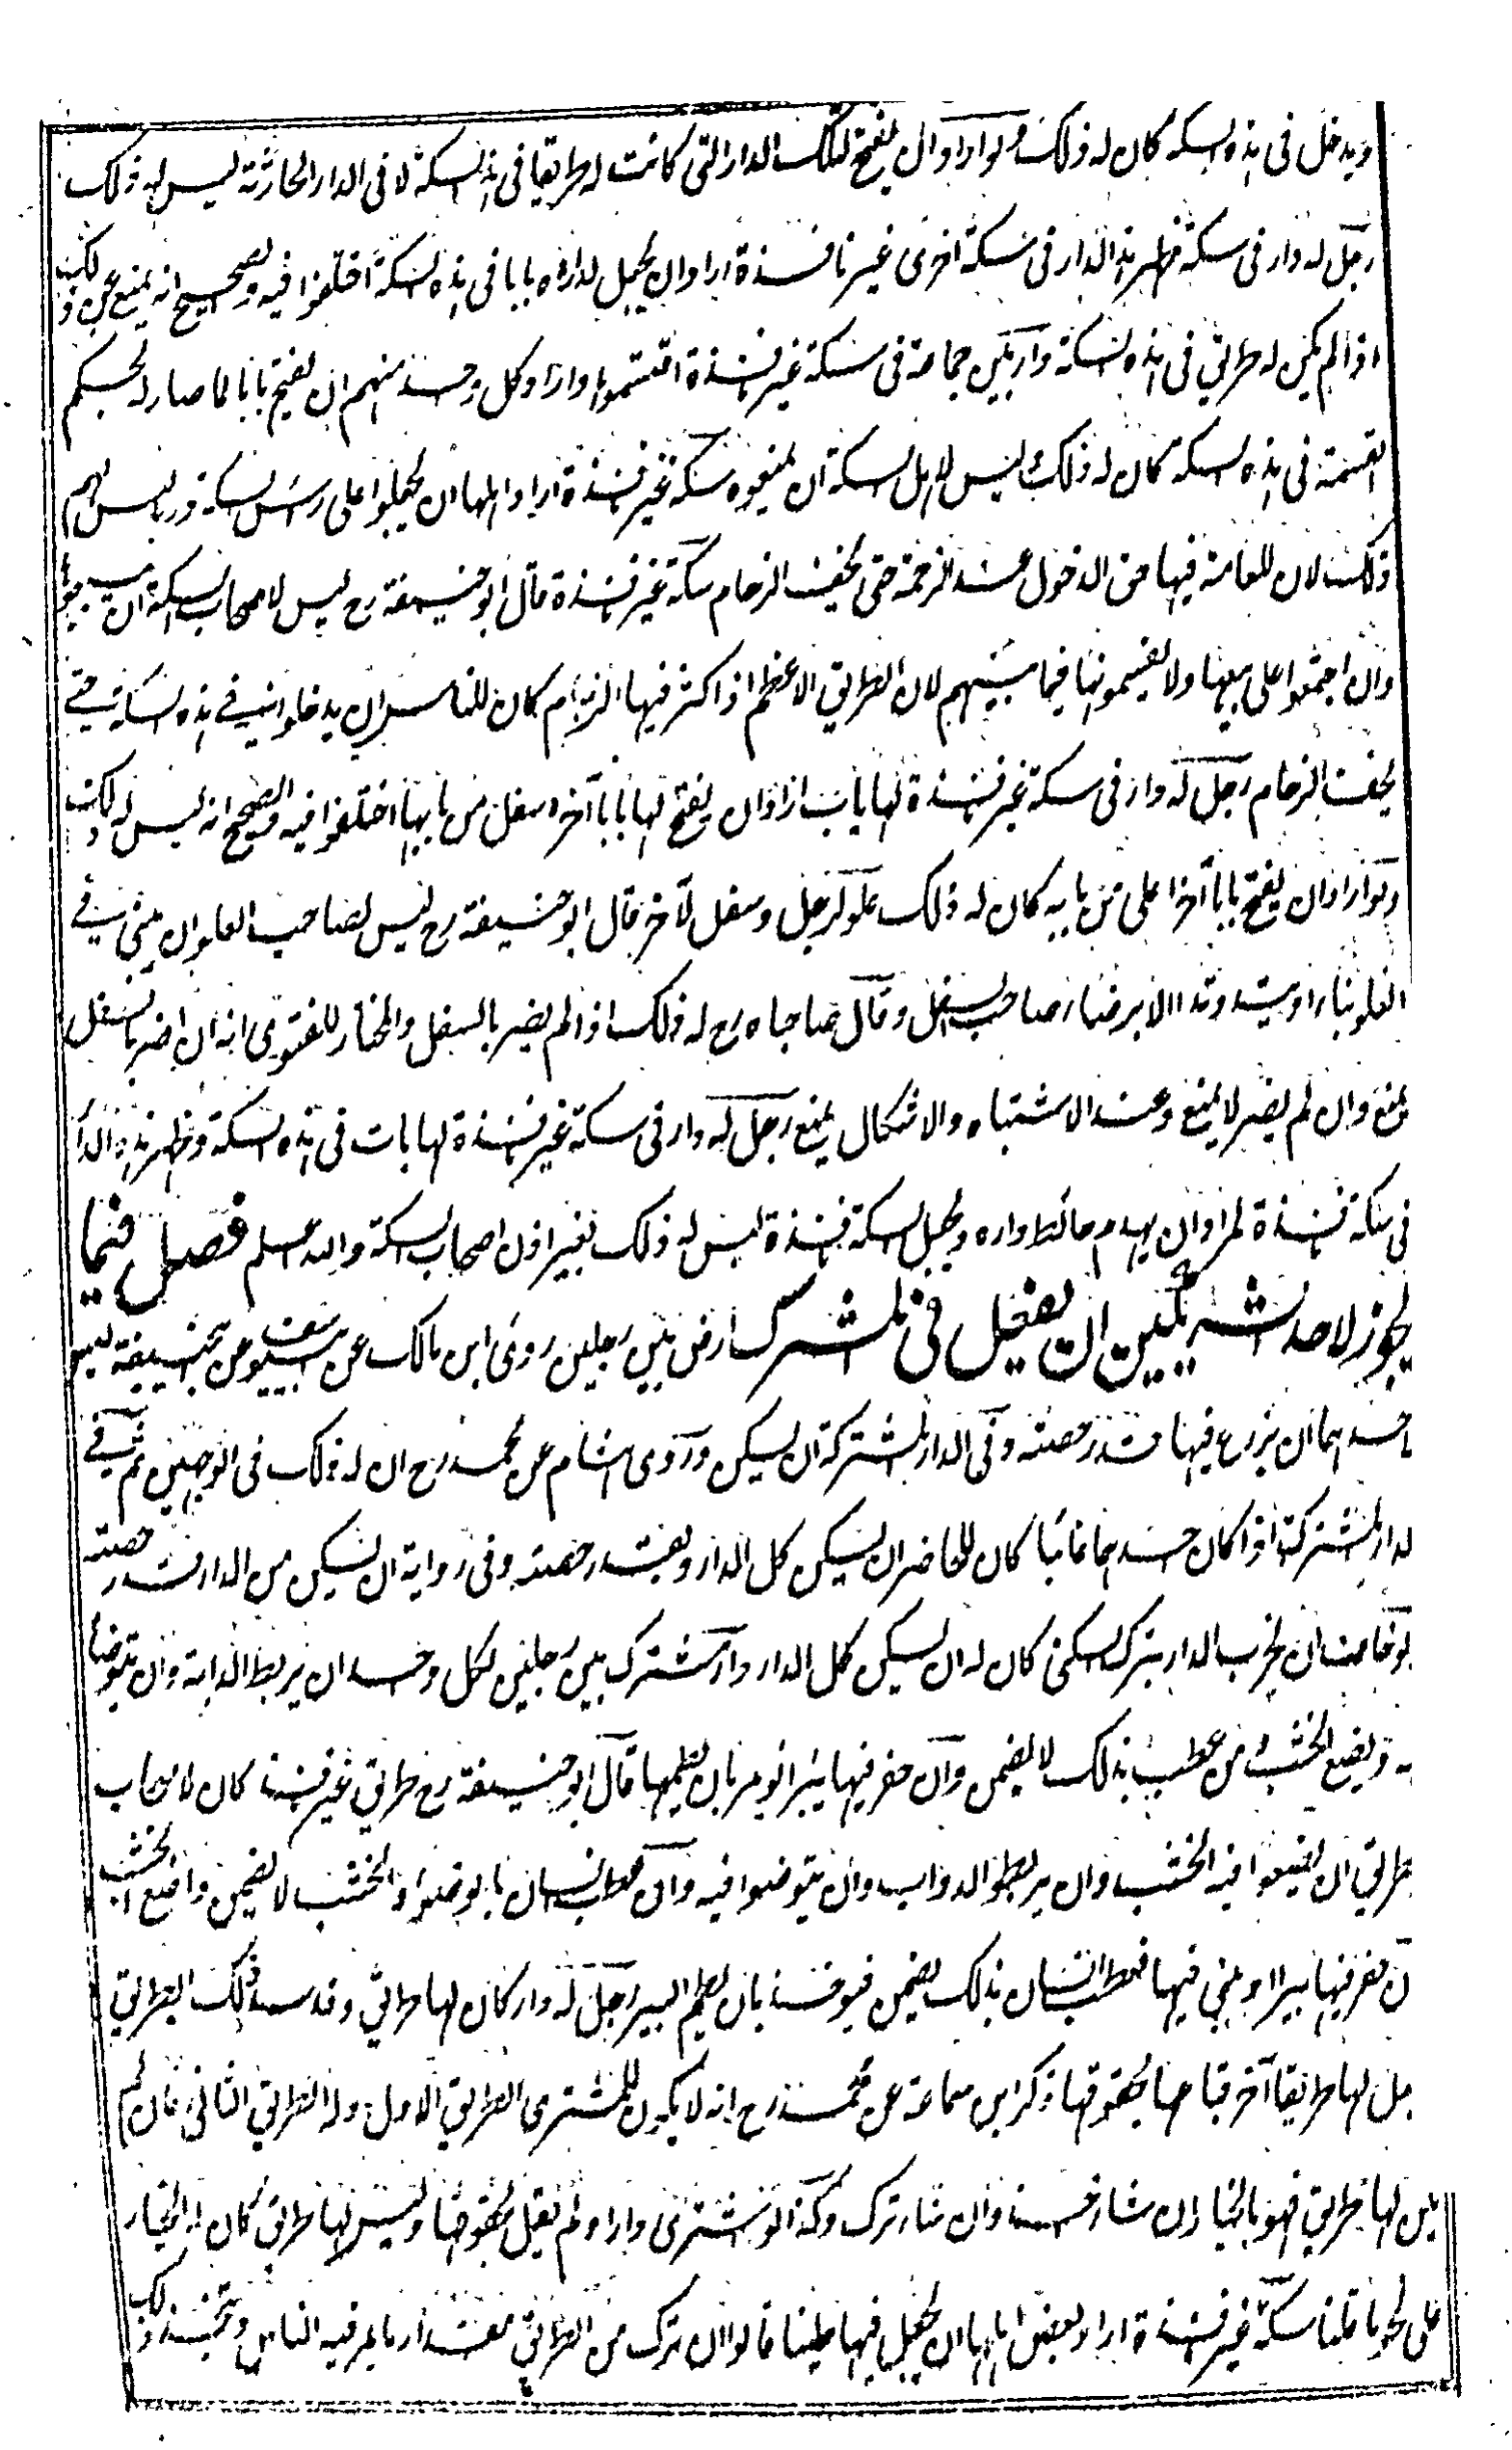 ويدخل في هذه السكة كان له ذلك ولو اراد ان يفتح لتلك الدار التي كانت له طريقا في هذه السكة لا في الدار الحادثة ليس له ذلك
رجل له دار في سكة ظهر هذا الدار في سكة اخرى غير نافذة اراد ان يجعل لداره بابا في هذه السكة اختلفوا فيه والصحيح انه يمنع عن ذلك
اذا لم يكن له طريق في هذه السكة دار بين جماعة في سكة غير نافذة اقتسموا واراد كل واحد منهم ان يفتح بابا لما صار له بحكم
القسمة في هذه السكة كان له ذلك ليس لاهل السكة ان يمنعوه سكة غير نافذة اراد اهلها ان يجعلوا على رأس السكة دربا ليس لهم
ذلك لان للعامة فيها حق الدخول عند الزحمة حتى يخف الزحام سكة غير نافذة قال ابو حنيفة رح ليس لاصحاب السكة ان يبيعوا
وان اجتمعوا على بيعها ولا يقسمونها فيما بينهم لان الطريق الاعظم اذا كثر فيها الزحام كان للناس ان يدخلوا في هذه السكة حتى
يخف الزحام رجل له دار في سكة غير نافذة لها باب اراد ان يفتح لها بابا آخر اسفل من بابها اختلفوا فيه والصحيح انه ليس له ذلك
ولو اراد ان يفتح بابا آخر اعلى من بابه كان له ذلك علو لرجل وسفل لآخر قال ابو حنيفة رح ليس لصاحب العلو ان يبني في
العلو بناء او يتد وتدا الا برضا صاحب السفل وقال صاحباه رح له ذلك اذا لم يضر بالسفل والمختار للفتوى انه ان اضر بالسفل
يمنع وان لم يضر لا يمنع وعند الاشتباه والاشكال يمنع رجل له دار في سكة غير نافذة لها باب في هذه السكة وظهر هذه الدار
في سكة نافذة اراد ان يهدم حائط داره ويجعل السكة نافذة ليس له ذلك بغير اذن اصحاب السكة والله اعلم فصل فيما
يجوز لاحد الشريكين ان يفعل في المشترك ارض بين رجلين روى ابن مالك عن ابي يوسف عن ابي حنيفة ليس
لاحدهما ان يزرع فيها قدر حصته وفي الدار المشتركة ان يسكن وروى هشام عن محمد رح ان له ذلك في الوجهين ثم في
الدار المشتركة اذا كان احدهما غائبا كان للحاضر ان يسكن كل الدار وبقدر حصته وفي رواية ان يسكن من الدار قدر حصته
لو خاف ان يخرب الدار بترك السكنى كان له ان يسكن كل الدار دار مشترك بين رجلين لكل واحد ان يربط الدابة وان يتوضأ
فيه ويضع الخشب من عطب بذلك لا يضمن وان حفر فيها بئرا يؤمر بان يطمها قال ابو حنيفة رح طريق غير نافذ كان لاصحاب
الطريق ان يضعوا فيه الخشب وان يربطوا الدواب وان يتوضوا فيه وان عطب انسان بالوضوء والخشب لا يضمن واضع الخشب
ان حفر فيها بيرا او بنى فيها فعطب انسان بذلك يضمن فيؤخذ بان يطم البير رجل له دار كان لها طريق وقد سد ذلك الطريق
جعل لها طريقا آخر فباعها بحقوقها ذكر ابن سماعة عن محمد رح انه لا يكون للمشتري الطريق الاول وله الطريق الثاني فان لم
يكن لها طريق فهو بالخيار ان شاء اخذ وان شاء ترك وكذا لو اشترى دارا ولم يقل بحقوقها وليس لها طريق كان له الخيار
على نحو ما قلنا سكة غير نافذة اراد بعض اهلها ان يجعل فيها طينا قالوا ان ترك من الطريق مقدار ما يمر فيه الناس ويتخذ ذلك